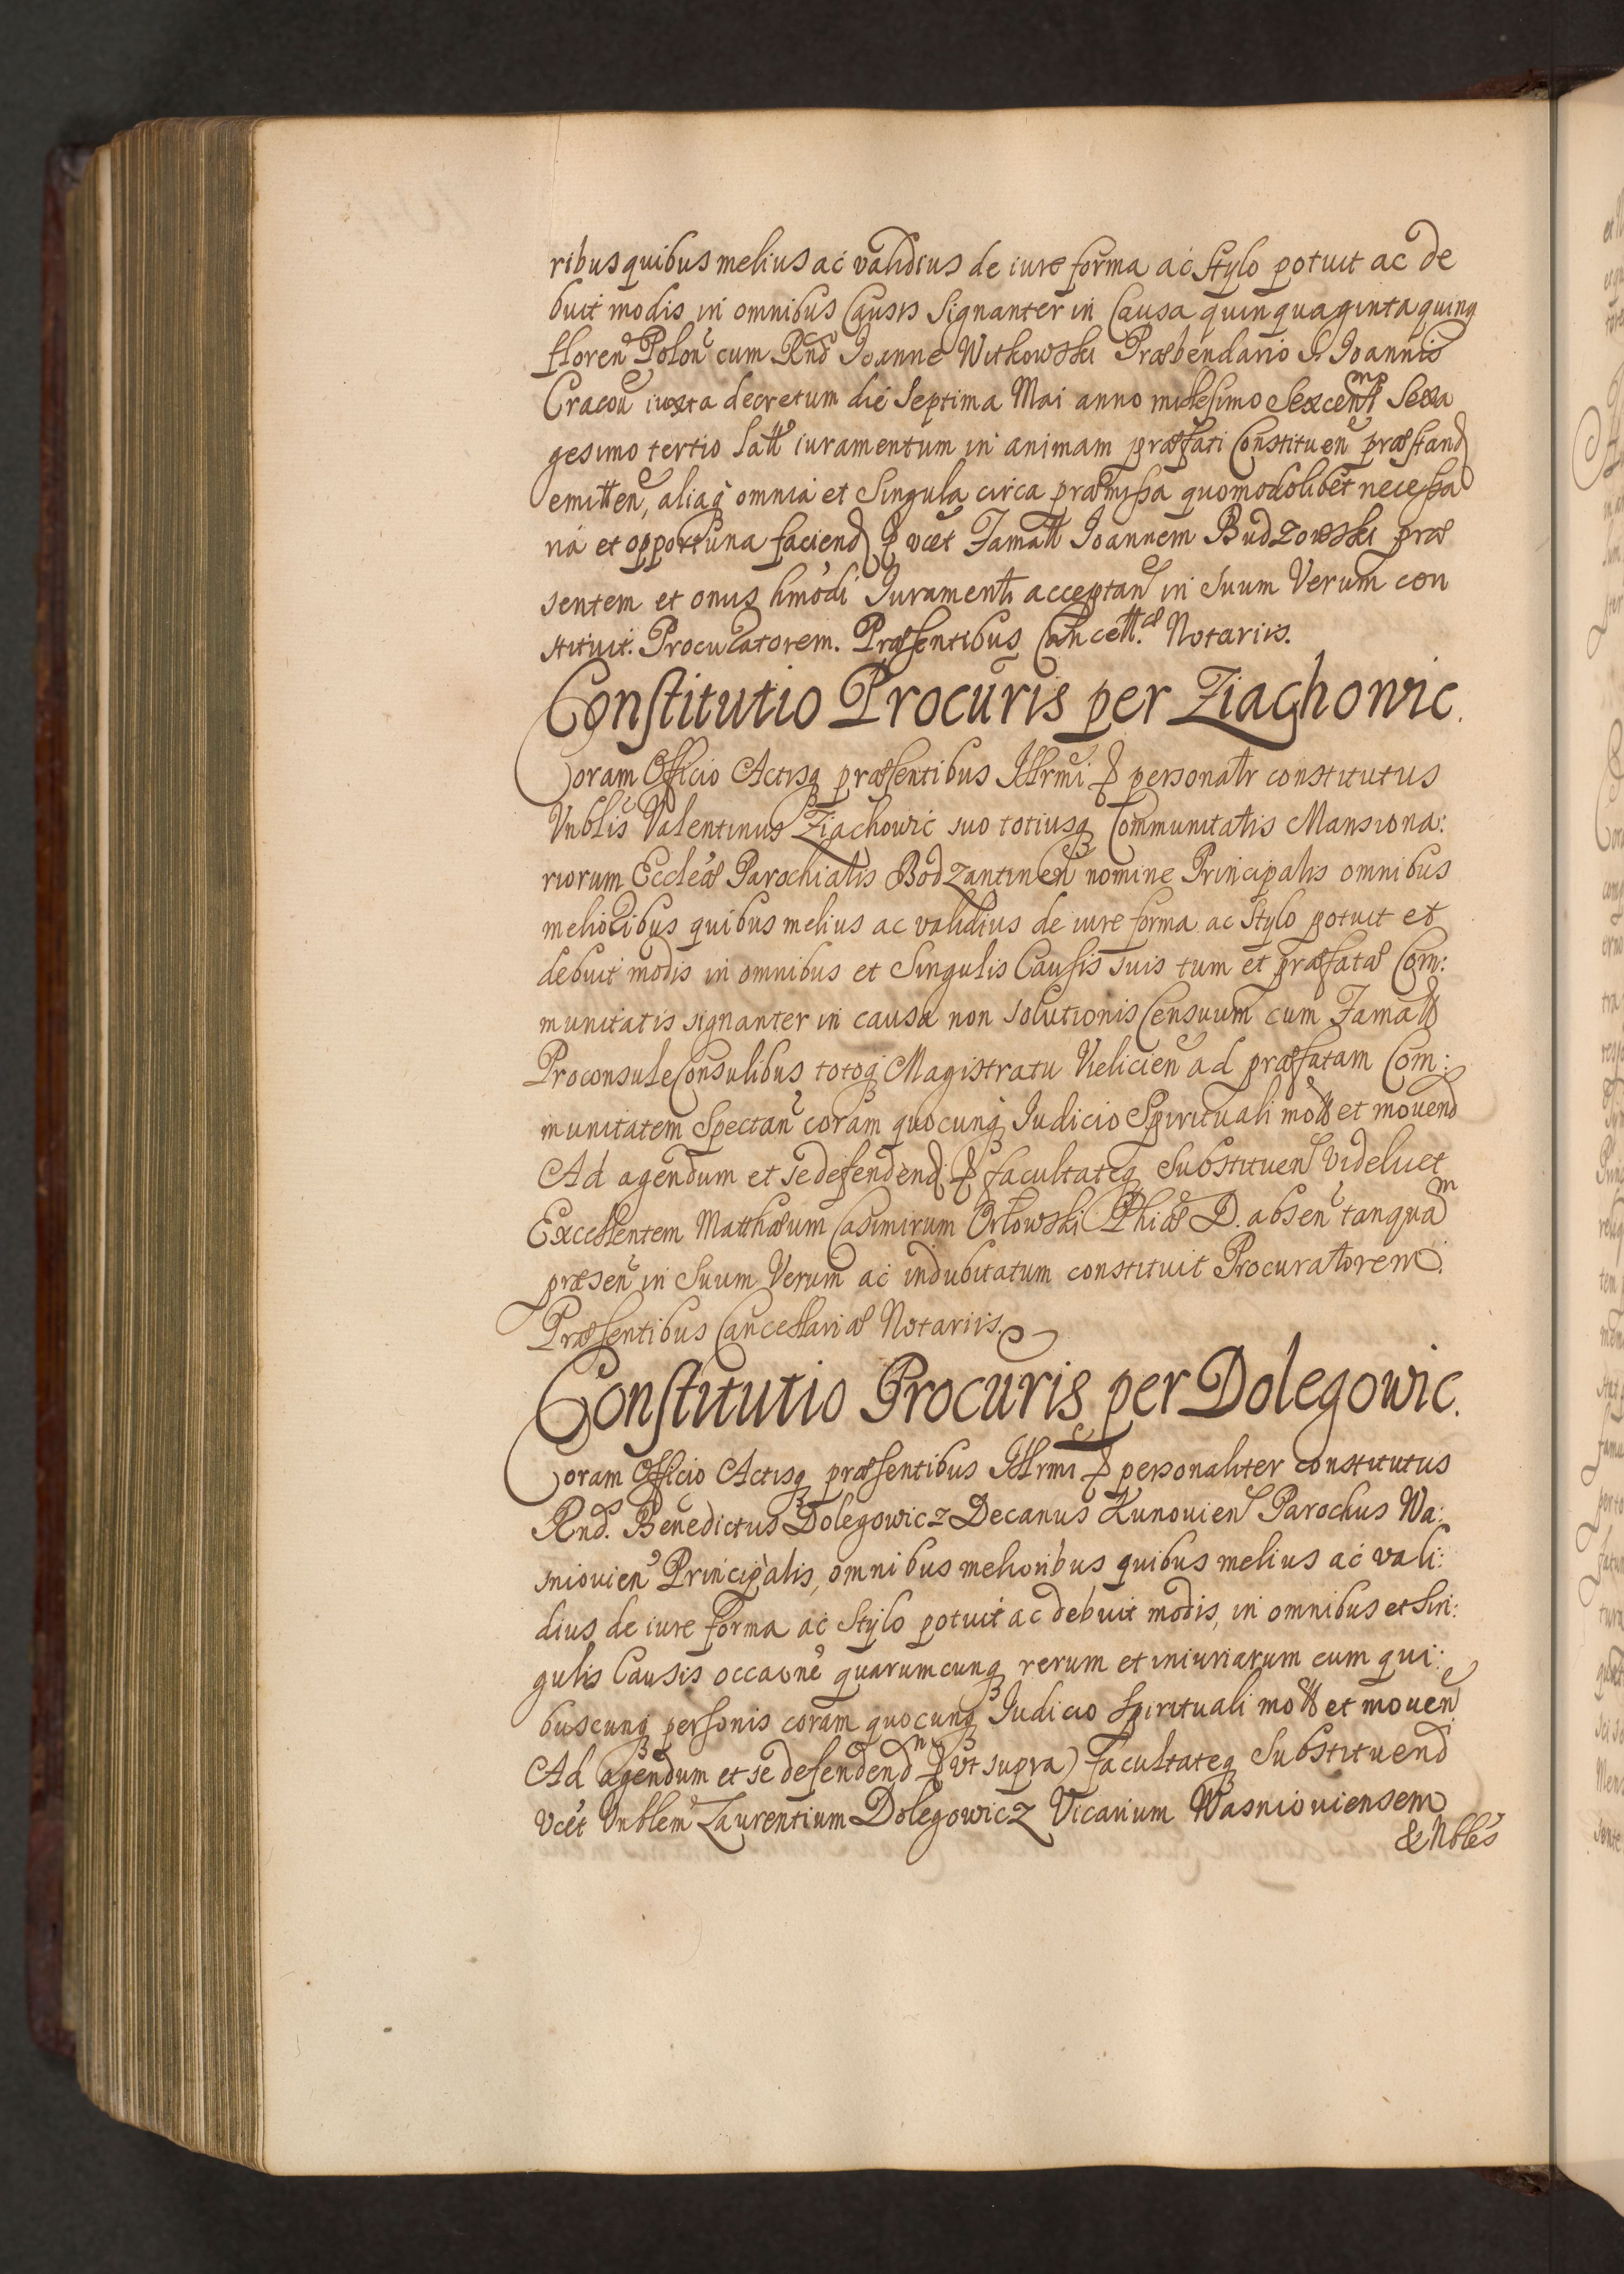 ribus quibus melius ac validius de iure forma ac stylo potuit ac de
buit modis in omnibus Causis signanter in Causa quinquaginta quinq
floren Polon cum Rnd Ioanne Witkowski Præbendario S. Ioannis
Cracou iuxta decretum die septima Mai anno millesimo sexcentmo sexa
gesimo tertio latt iuramentum in animam præfati Constituen præstand
emitten, aliaq omnia et singula circa præmissa quomodolibet necessa
ria et opportuna faciend & vcet Famatt Ioannem Budzowski præ
sentem et onus hmodi Iuramenti acceptan in suum Verum con
stituit. Procuratorem. Præsentibus Cancell.æ Notariis.
Constitutio Procuris per Ziachowic.
Coram Officio Actisq præsentibus Illrmi & personalr constitutus
Vnblis Valentinus Ziachowic suo totiusq Communitatis Mansiona:
riorum Eccleæ Parochialis Bodzantinen nomine Principalis omnibus
melioribus quibus melius ac validius de iure forma ac stylo potuit et
debuit modis in omnibus et singulis Causis suis tum et præfatæ Com:
munitatis signanter in causa non solutionis Censuum cum Famatt
Proconsule Consulibus totoq Magistratu Vielicien ad præfatam Com:
munitatem spectan coram quocunq Iudicio Spirituali mott et mouend
Ad agendum et se defendend & facultateq substituen videlicet
Excellentem Matthæum Casimirum Orlowski Phiæ D. absen tanquam
præsen in suum Verum ac indubitatum constituit Procuratorem.
Præsentibus Cancellariæ Notariis.
Constitutio Procuris per Dolegowic.
Coram Officio Actisq præsentibus Illrmi & personaliter constitutus
Rnds. Benedictus Dolegowicz Decanus Kunouien Parochus Wa:
sniouien Principalis, omnibus melioribus quibus melius ac vali:
dius de iure forma ac stylo potuit ac debuit modis, in omnibus et sin:
gulis Causis occaone quarumcunq rerum et iniuriarum cum qui:
buscunq personis coram quocunq Iudicio spirituali mott et mouen
Ad agendum et se defendendm & vt supra) facultateq substituend
vcet Vnblem Laurentium Dolegowicz Vicarium Wasniouiensem
& Nobles